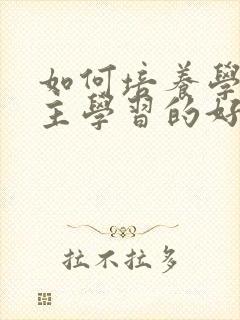 如何培養學
主學習的好
拉不拉多